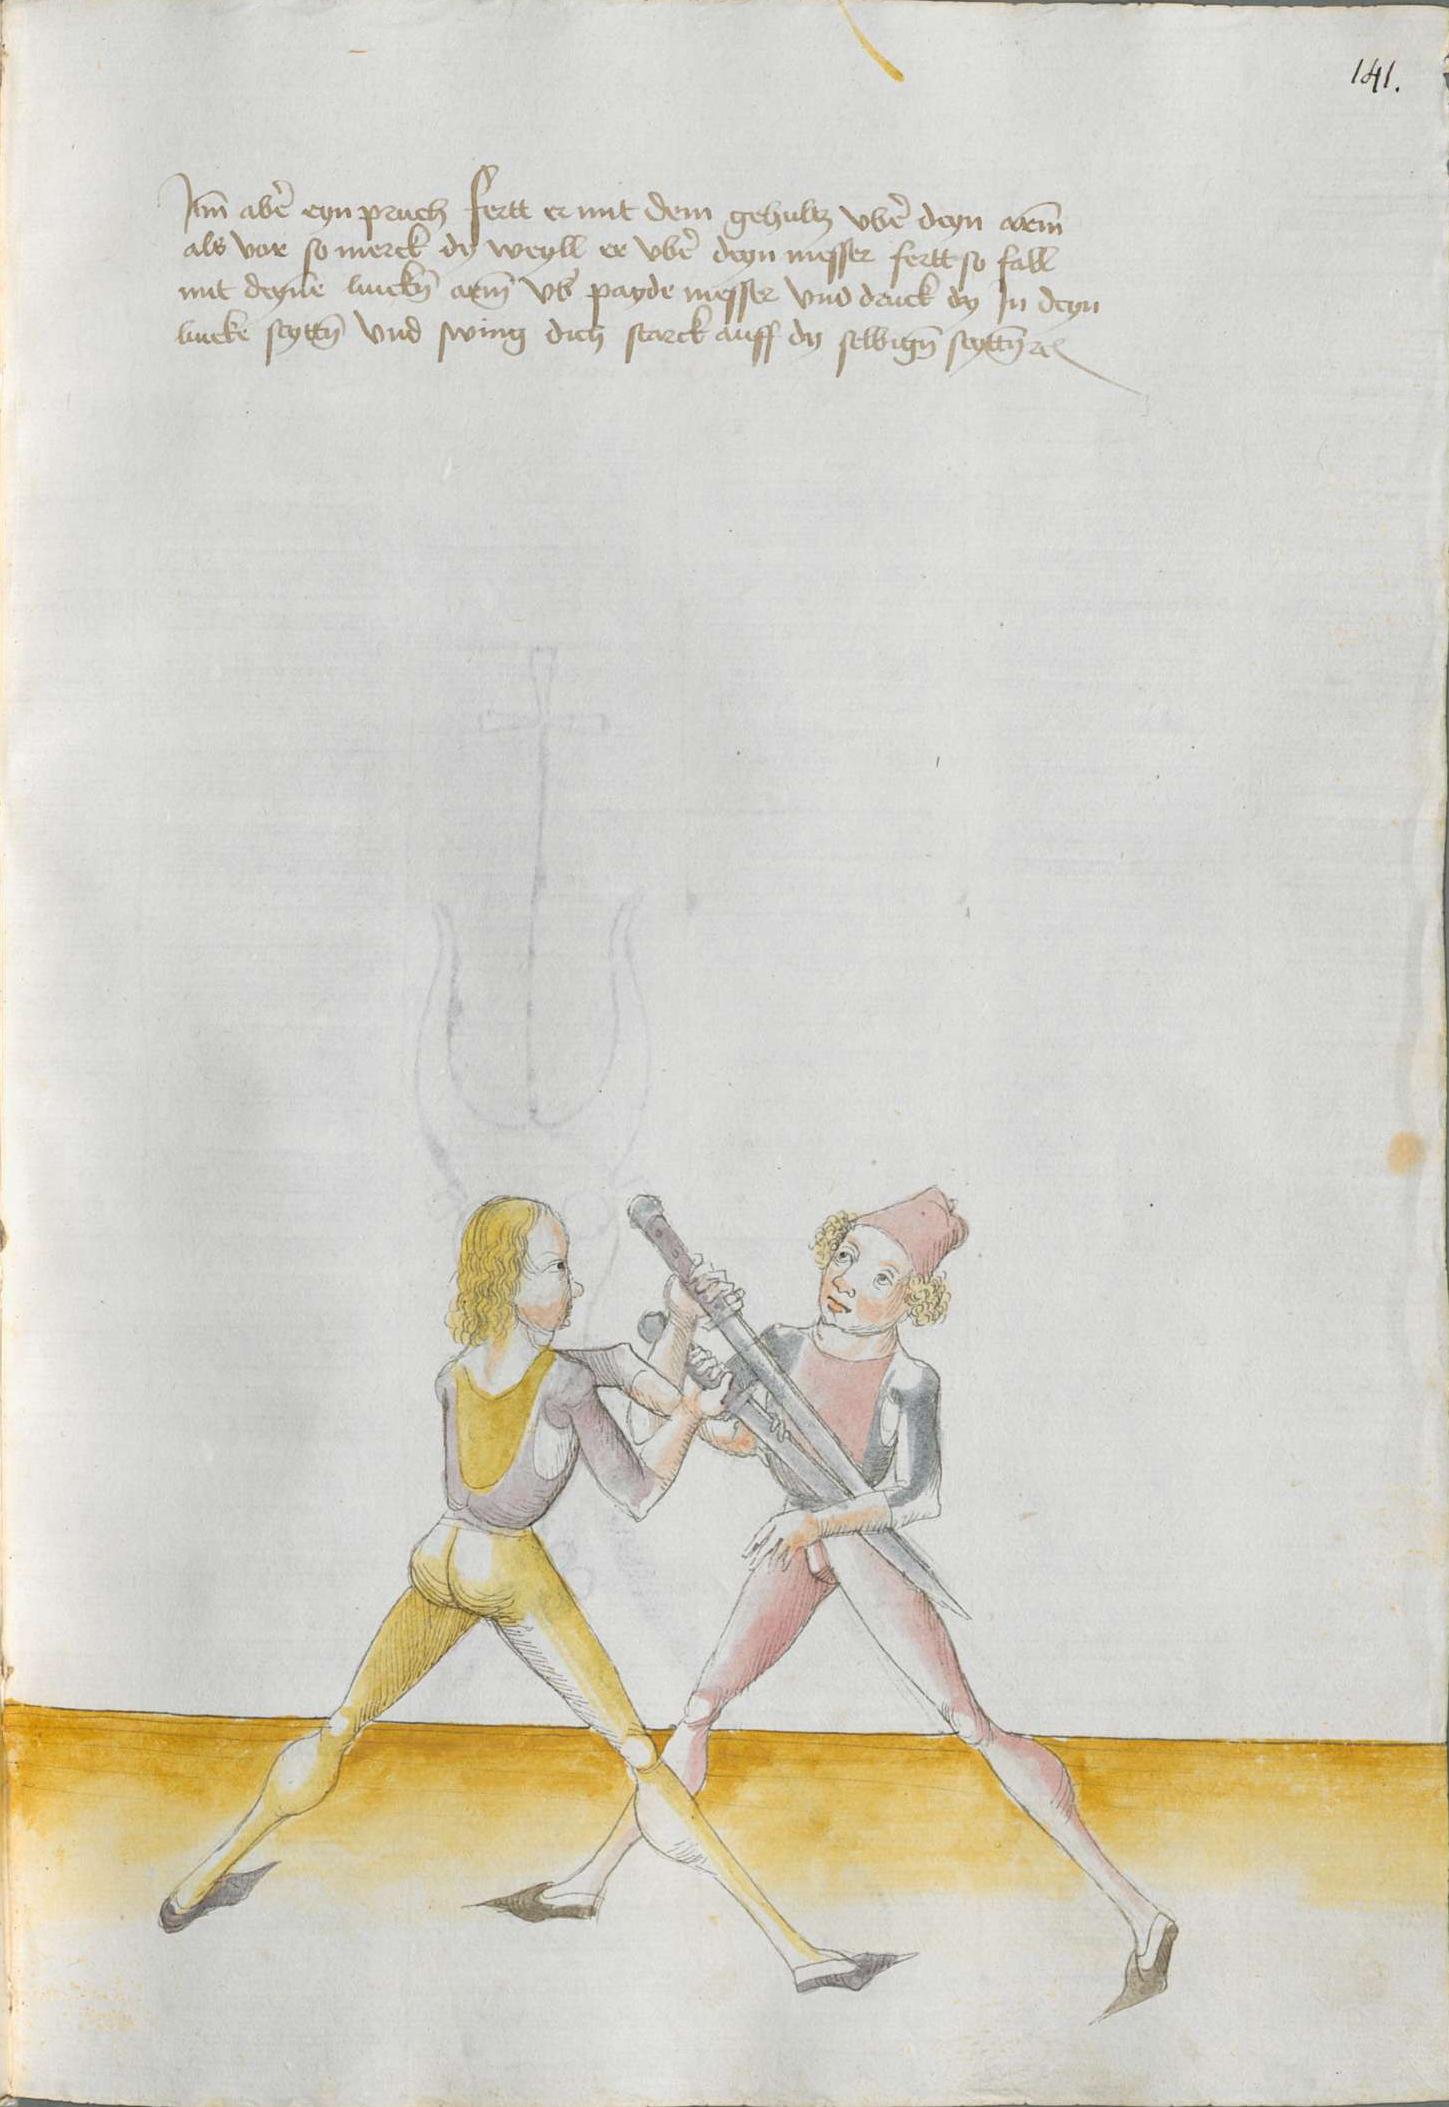 141.
Im̄ abẽ eyn pruch fertt er mit dem gehultz vbẽ deyn arm̄
als vor so merck dy weyll er vbẽ deyn messer fertt so fall
mit deynē linckn̄ arm̄ vb̃ payde messer vnd druck dy In deyn
lincke seyttn̄ vnd swing dich starck auff dy selbign̄ seyttn̄ rc